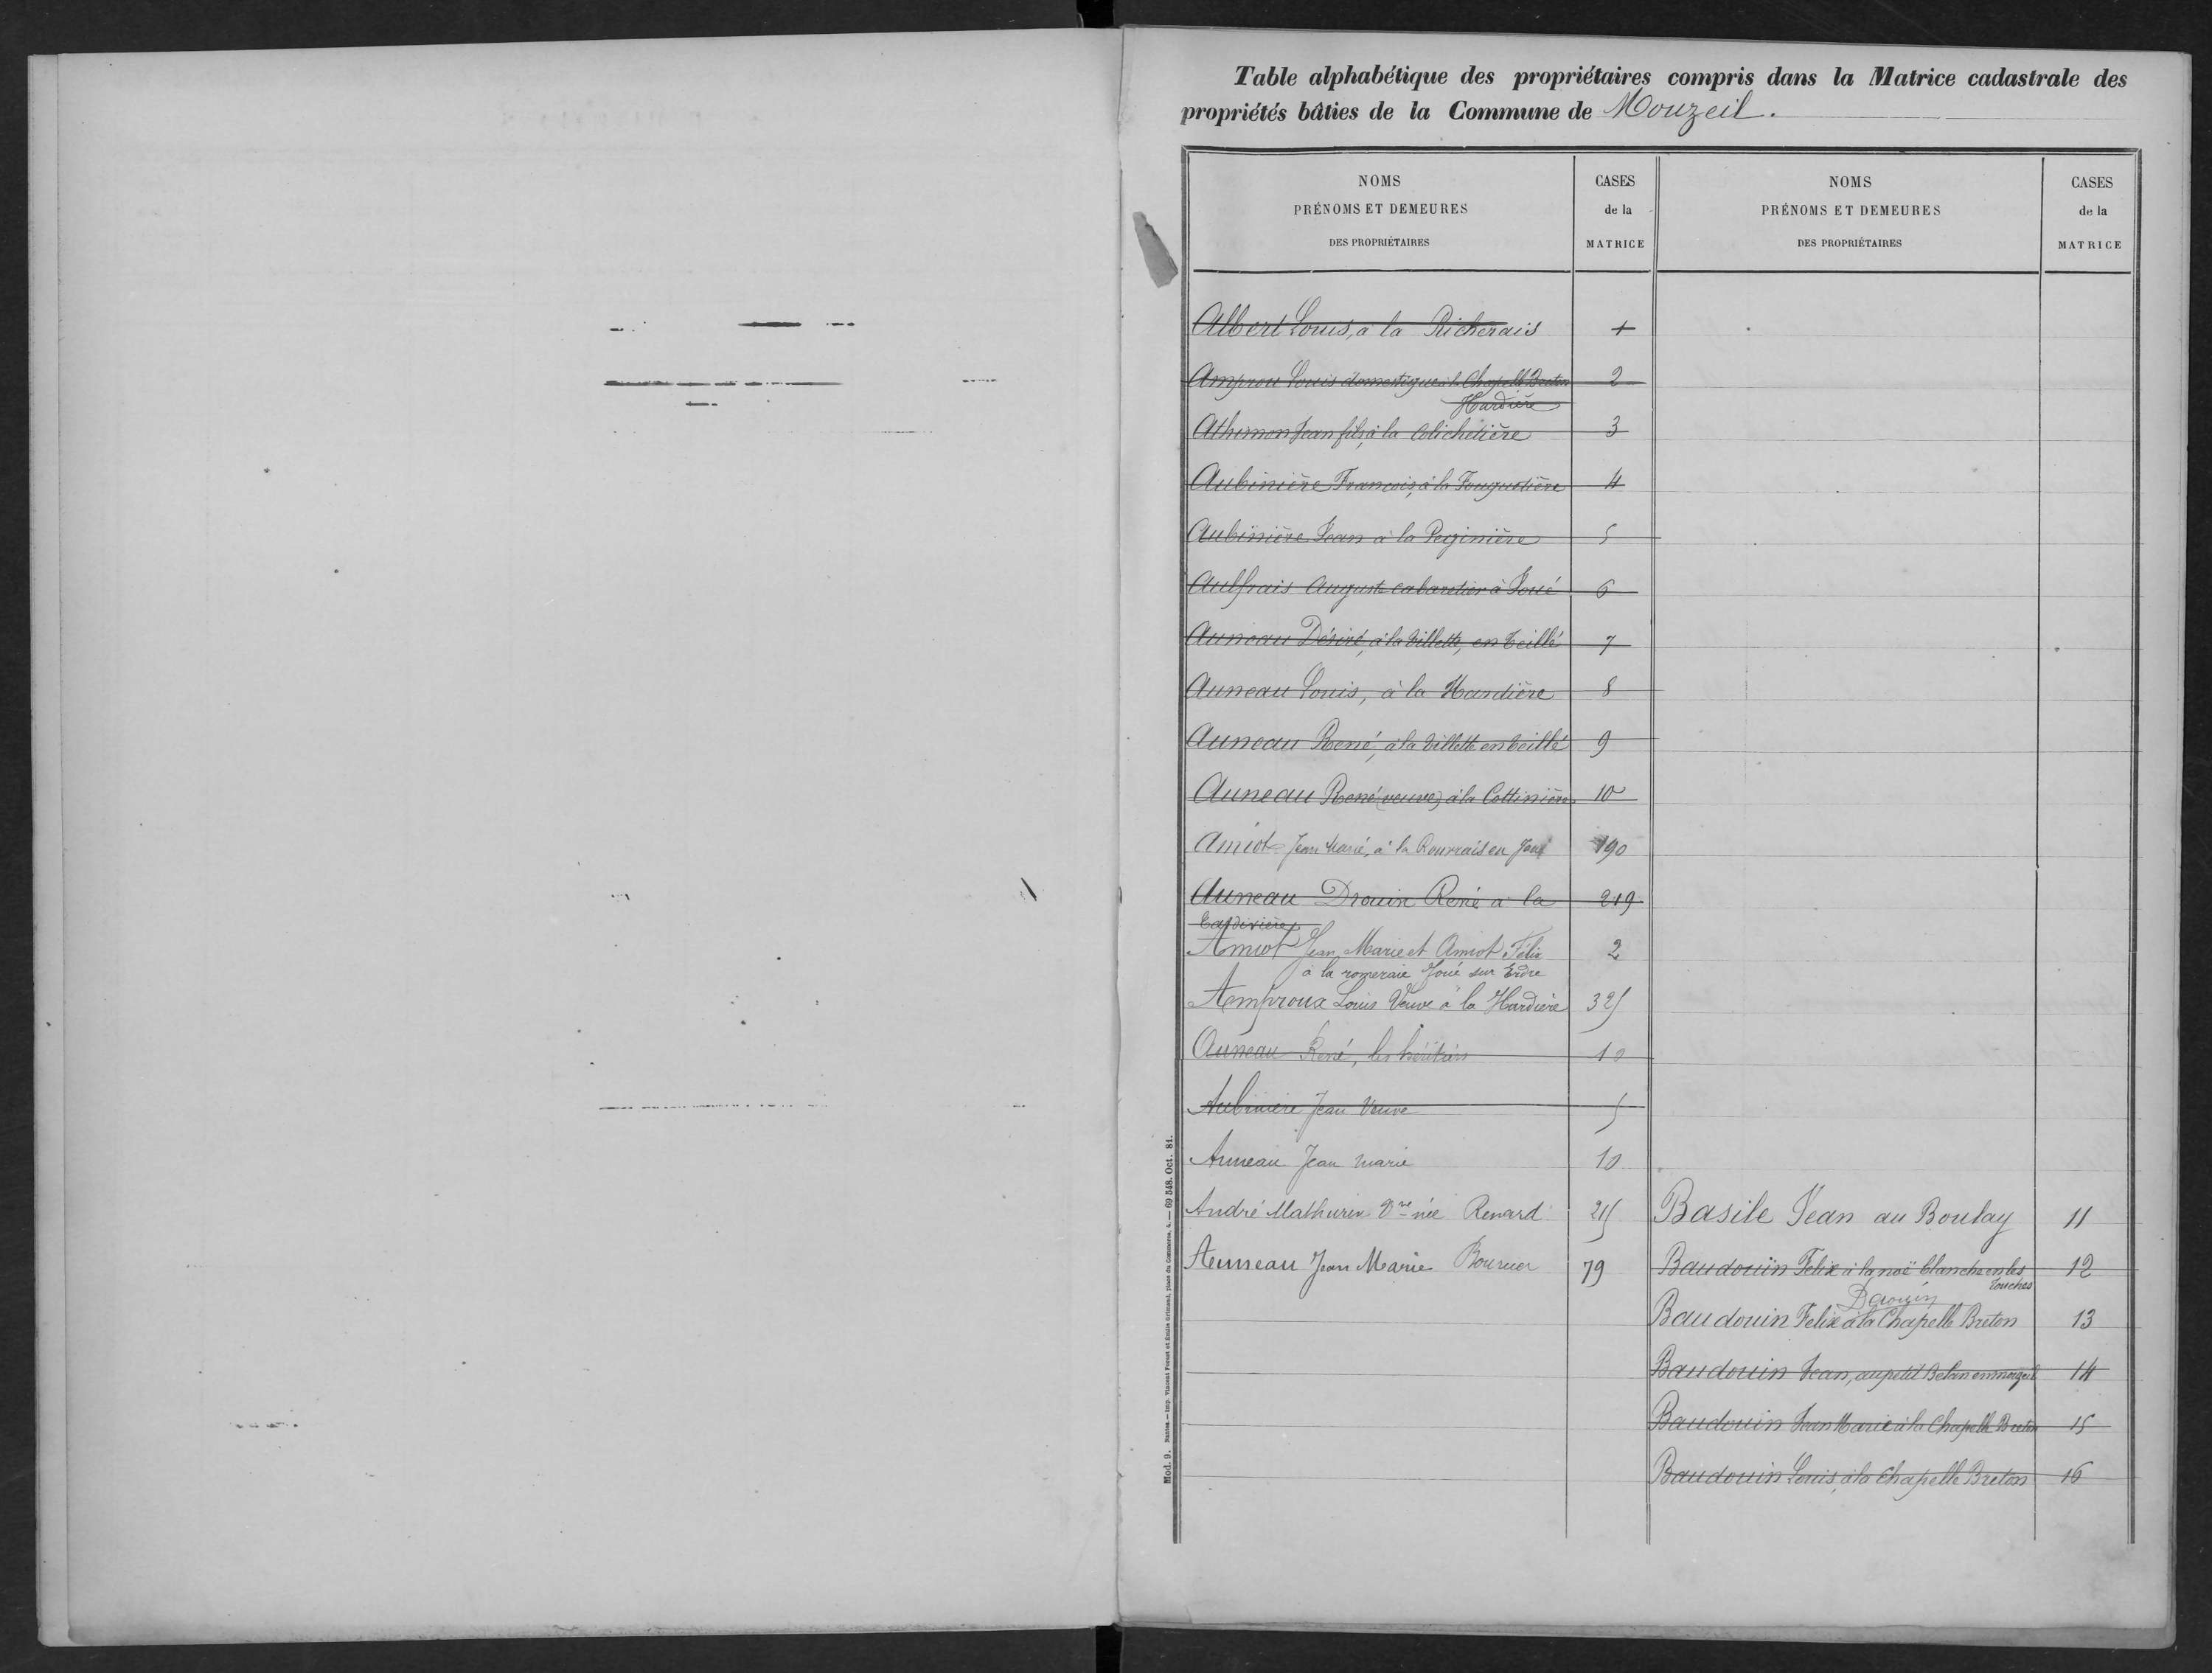 Table alphabétique des propriétaires compris dans la Matrice cadastrale des
propriétés bâties de la Commune de Mouzeil.
NOMS
PRÉNOMS ET DEMEURES
DES PROPRIÉTAIRES
CASES
de la
MATRICE
NOMS
PRÉNOMS ET DEMEURES
DES PROPRIÉTAIRES
CASES
de la
MATRICE
Albert Louis, à la Richerais 1
Amprou Louis domestique à la Chapelle Breton 2
Hardière
Athimon Jean fils, à la 3
Aubinière François, à la 4
Aubinière Jean à la 5
Aulfrais Auguste cabaretier à Joué 6
Auneau Désiré, à la Villette, en Teillé 7
Auneau Louis, à la Hardière 8
Auneau René, à la Villette en Teillé 9
Auneau René (veuve) à la Cottinière 10
Amiot Jean Marie, à la en Joué 190
Auneau Drouin René à la 219
Tardivière
Amiot Jean Marie et Amiot Félix 2
à la romeraie Joué sur Erdre
Amproux Louis Veuve à la Hardière 325
Auneau René, les héritiers 10
Aubinière Jean Veuve 5
Auneau Jean Marie 10
André Mathurin Vve née Renard 215
Auneau Jean Marie 79
Basile Jean au Boulay 11
Baudouin Felix à la noë blanche en les 12
Touches
Drouin
Baudouin Felix à la Chapelle Breton 13
Baudouin Jean, au petit en mouzeil 14
Baudouin Jean Marie à la Chapelle Breton 15
Baudouin Louis, à la Chapelle Breton 16
Mod. 9. Nantes. — Imp. Vincent Forest et Emile Grimaud, place du Commerce, 4. — 69 548. Oct. 81.